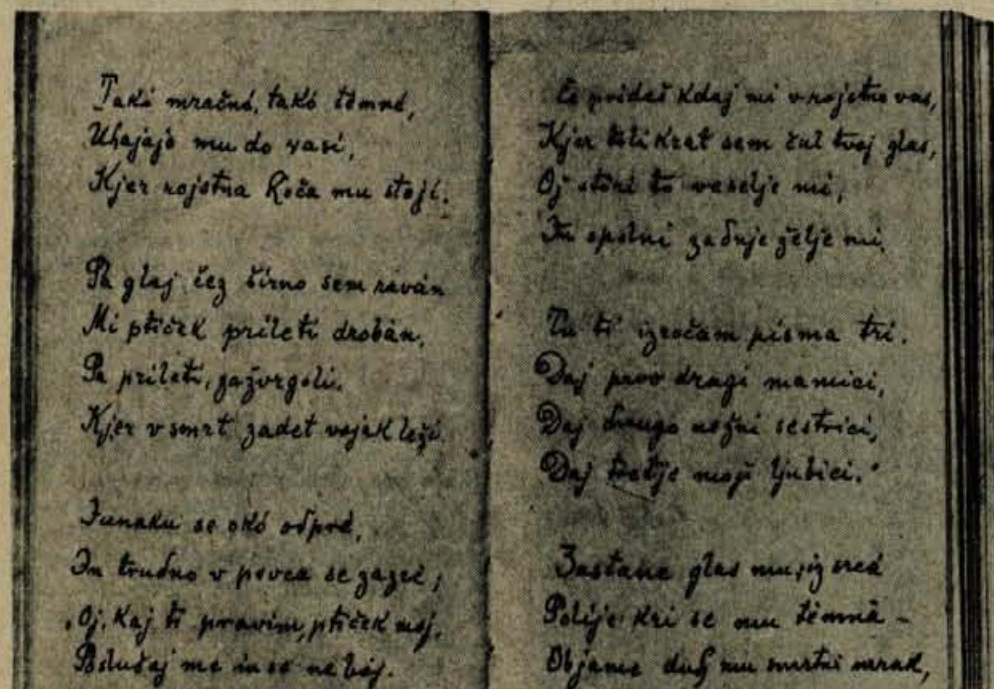 Takó mračnó, takó témnó,
Uhajajo mu do vasi,
Kjer rojstna koča mu stoji.
Pa glej, čez širno sem ravàn
Mi ptiček prileti drobàn.
Pa prileti, zažvrgoli.
Kjer v smrt zadet vojak leži.
Junaku se okó odpró,
In trudno v pevca se zazró;
„Oj, kaj ti pravim, ptiček moj,
Poslušaj me in se ne boj.
Če prideš kdaj mi v rojstno vas,
Kjer tolikrat sem čul tvoj glas,
Oj stóri to veselje mi,
In spolni zadnje želje mi.
Tu ti izročam pisma tri.
Daj prvo dragi mamici,
Daj drugo nežni sestrici,
Daj tretje moji ljubici."
Zastane glas mu, iz srcá
Polije kri se mu témnà –
Objame duh mu smrtni mrak,